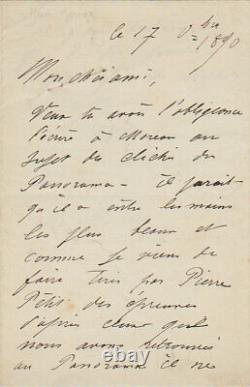 ce 17 8bre 1890
Mon cher ami,
Veux tu avoir l'obligeance
d'écrire à Moreau au
sujet des clichés du
Panorama - il parait
qu'il a entre les mains
les plus beaux et
comme je viens de
faire tirer par Pierre
Petit des épreuves
d'après ceux que
nous avons retrouvés
au Panorama il ne